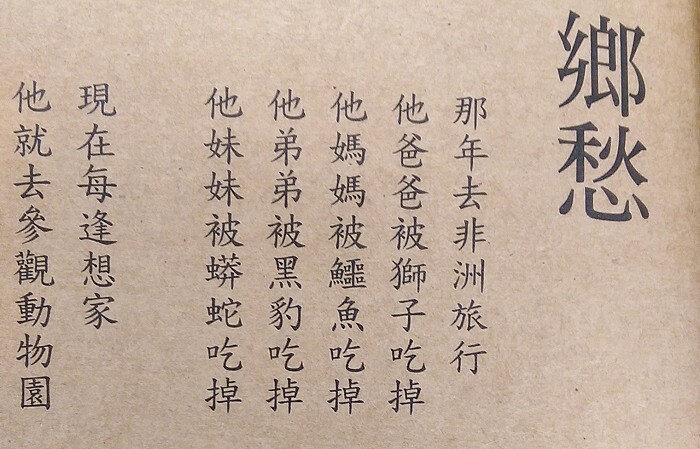 鄉愁
那年去非洲旅行
他爸爸被獅子吃掉
他媽媽被鱷魚吃掉
他弟弟被黑豹吃掉
他妹妹被蟒蛇吃掉
現在每逢想家
他就去參觀動物園